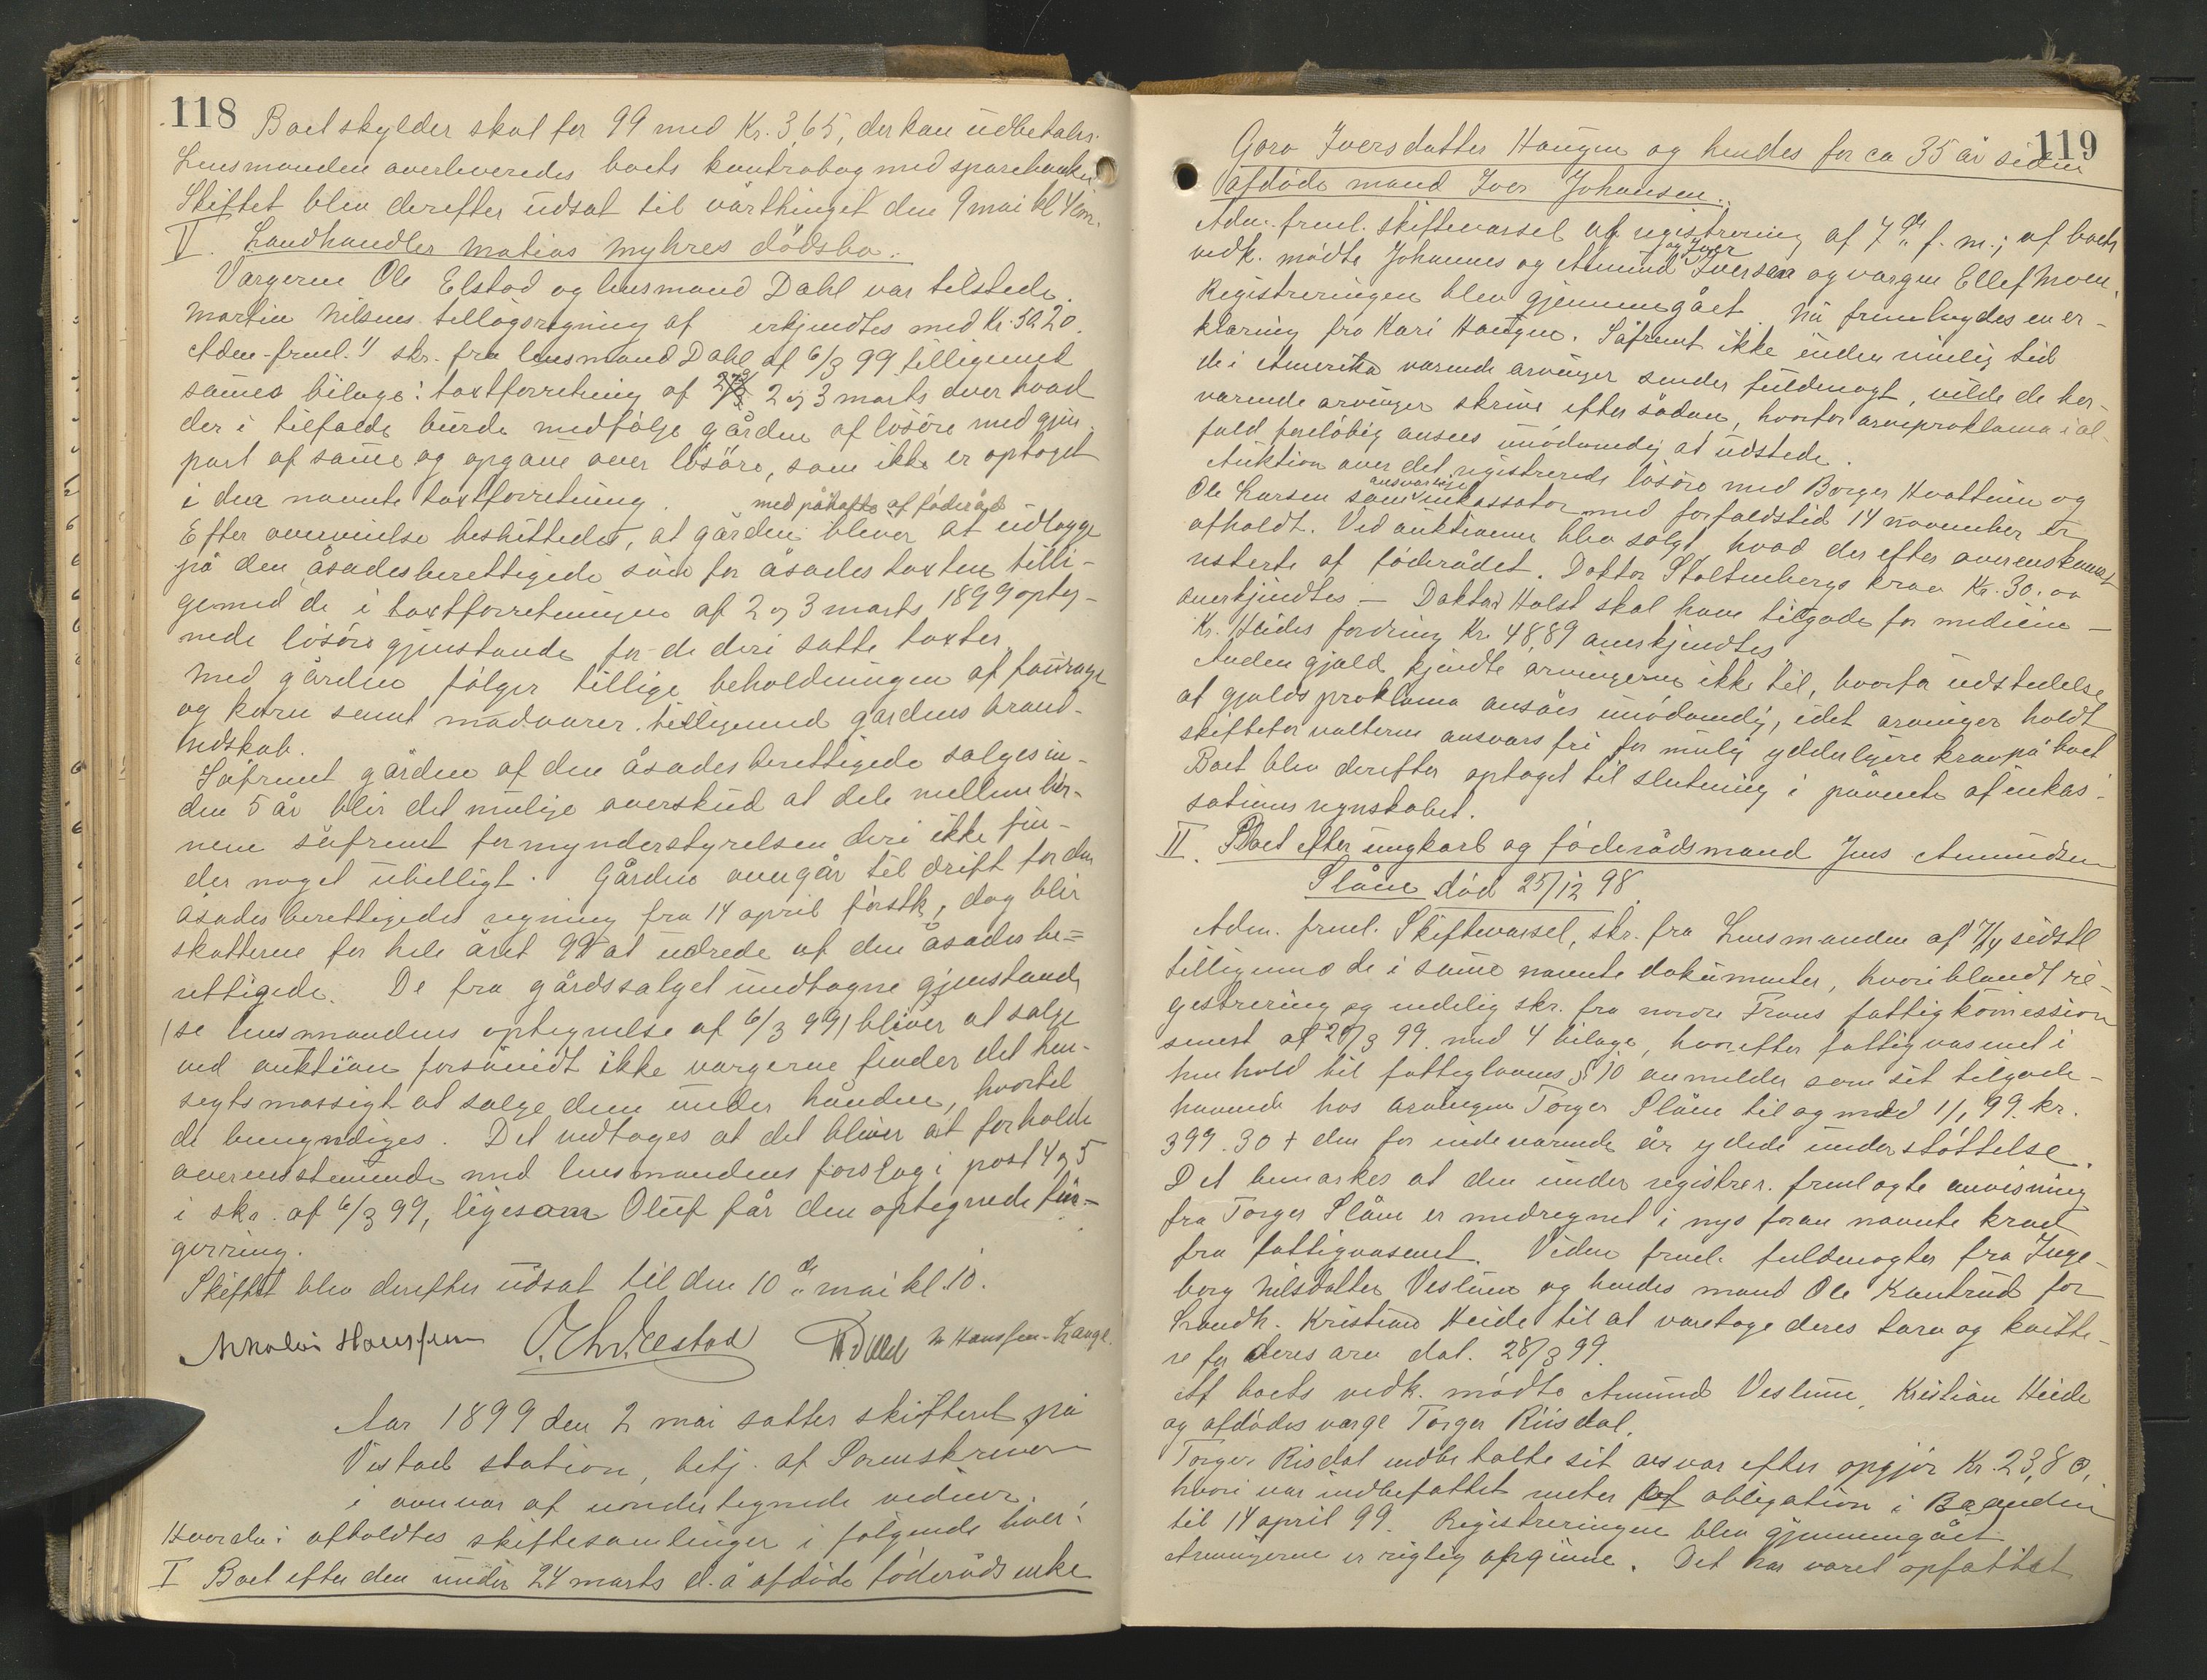 118
Boet skylder skat for 99 med Kr. 3,65, der kan udbetales.
Lensmanden overleveredes boets kontrabog med sparebanken
Skiftet blev derefter udsat til vårthinget den 9 mai kl 4 em.
V. Landhandler Matias Myhres dødsbo.
Værgerne Ole Elstad og lensmand Dahl var tilstede.
Martin Nilsens tillægsregning af erkjendtes med Kr. 50.20.
Adm. freml. 1) skr. fra lensmand Dahl af 6/3 99 tilligemed
sammes bilage: taxtforretning af 2 og 3 marts over hvad
der i tilfælde burde medfølge gården af løsøre med gjen-
part af samme og opgave over løsøre, som ikke er optaget
i den nævnte taxtforretning. med påhefte af føderåd
Efter overveielse besluttedes, at gården bliver at udlægge
på den åsædesberettigede søn for åsædestaxten tilli-
gemed de i taxtforretningen af 2 og 3 marts 1899 opteg-
nede løsøregjenstande for de deri satte taxter.
Med gården følger tillige beholdningen af fourage
og korn samt madvarer tilligemed gårdens brand-
redskab.
Såfremt gården af den åsædesberettigede sælges in-
den 5 år blir det mulige overskud at dele mellem bør-
nene såfremt formynderstyrelsen deri ikke fin-
der noget ubilligt. Gården overgår til drift for den
åsædesberettigedes regning fra 14 april førstk, dog blir
skatterne for hele året 99 at udrede af den åsædesbe=
rettigede. De fra gårdssalget undtagne gjenstande
(se lensmandens optegnelse af 6/3 99) bliver at sælge
ved auktion forsåvidt ikke værgerne finder det hen-
sigtsmæssigt at sælge dem under hånden, hvortil
de bemyndiges. Det vedtoges at det bliver at forholde
overensstemmende med lensmandens forslag i post 4 og 5
i skr. af 6/3 99, ligesom Oluf får den optegnede fin-
gerring.
Skiftet blev derefter udsat til den 10de mai kl. 10.
Nikolai Hanssen O. Chr. Elstad W. Dahl N Hanssen-Lange.
Aar 1899 den 2 mai sattes skifteret på
Vestad station, betj. af Sorenskriveren
i overvær af undertegnede vidner.
Hvorda: afholdtes skiftesamlinger i følgende boer:
I Boet efter den under 24 marts d. å afdøde føderådsenke
119
Goro Iversdatter Haugen og hendes for ca 35 år siden
afdøde mand Iver Johansen.
Adm. freml. skiftevarsel og registrering af 7de f. m.; af boets
vedk. mødte Johannes og Amund og Iver Iversen og værgen Ellef Moen.
Registreringen blev gjennemgået. Nu fremlagdes en er-
klæring fra Kari Haugen. Såfremt ikke inden rimelig tid
de i Amerika værende arvinger sender fuldmagt, vilde de her-
værende arvinger skrive efter sådan, hvorfor arveproklama i al-
fald foreløbig ansees unødvendig at udstede.
Auktion over det registrerede løsøre med Borger Kvattum og
Ole Larsen som ansvarlige inkassator med forfaldstid 14 november er
afholdt. Ved auktionen blev solgt, hvad der efter overenskomst
resterte af føderådet. Doktor Stoltenbergs krav Kr. 30.00
anerkjendtes – Doktor Holst skal have tilgode for medicin –
Kr. Heides fordring Kr. 48,89 anerkjendtes
Anden gjæld kjendte arvingerne ikke til, hvorfor udstedelse
af gjældsproklama ansåes unødvendig, idet arvinger holdt
skifteforvalteren ansvarsfri for mulig yderligere krav på boet
Boet blev derefter optaget til slutning i påvente af inkas-
sationsregnskabet.
II. Boet efter ungkarl og føderådsmand Jens Amundsen
Slåen død 25/12 98.
Adm. freml. Skiftevarsel, skr. fra Lensmanden af 17/4 sidstl
tilligemed de i samme nævnte dokumenter, hvoriblandt re-
gistrering og endelig skr. fra nordre Frons fattigkomission
senest af 28/3 99 med 4 bilage, hvorefter fattigvæsenet i
henhold til fattiglovens § 10 anmelder som sit tilgode-
havende hos arvingen Torger Slåen til og med 1/1 99. kr.
399.30 + den for indeværende år ydede understøttelse.
Det bemærkes at den under registrer. fremlagte anvisning
fra Torger Slåen er medregnet i nys foran nævnte krav
fra fattigvæsenet. Viden freml. fuldmagter fra Inge-
borg Nilsdatter Veslum og hendes mand Ole Kantrud for
Landh. Kristian Heide til at varetage deres tarv og kvitte-
re for deres arv dat. 28/3 99.
Af boets vedk. mødte Amund Veslum, Kristian Heide
og afdødes værge Torger Riisdal.
Torger Risdal indbetalte sit ansvar efter opgjør Kr. 23,80,
hvori var indbefattet renter af obligation i Braandin
til 14 april 99. Registreringen blev gjennemgået.
Arvingerne er rigtig opgivne. Det har været opfattet